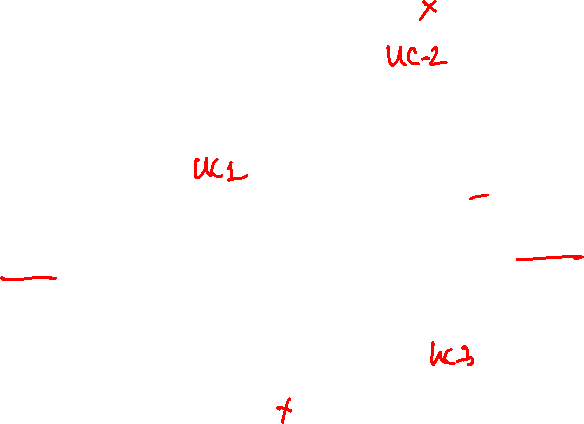 x
UC-2
UC1
UC3
+